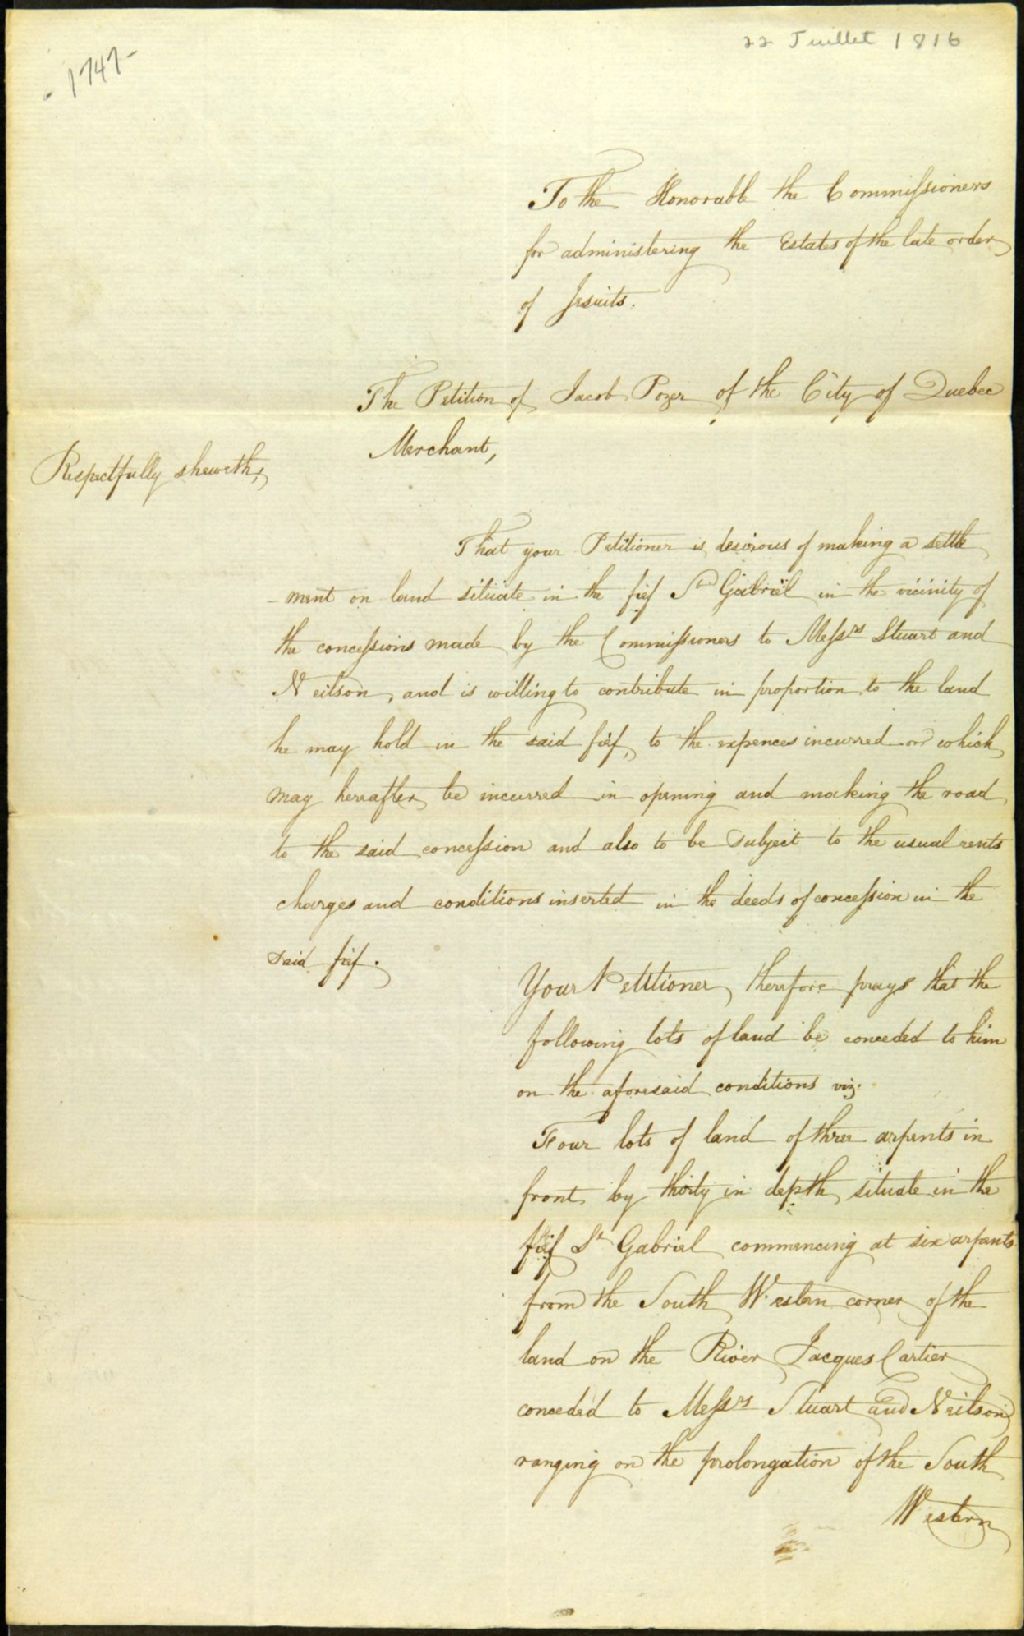 22 Juillet 1816
1747-
To the Honorable the Commissioners
for administering the Estates of the late order
of Jesuits.
The Petition of Jacob Pozer of the City of Quebec
Merchant,
Respectfully sheweth,
That your Petitioner is desirous of making a settle
-ment on land situate in the fief St Gabriël in the vicinity of
the concessions made by the Commissioners to Messrs Stuart and
Neilson, and is willing to contribute in proportion to the land
he may hold in the said fief, to the expences incurred or which
may hereafter be incurred in opening and making the road
to the said concession and also to be subject to the usual rents
charges and conditions inserted in the deeds of concession in the
said fief.
Your Petitioner, therefore prays that the
following lots of land be conceded to him
on the aforesaid conditions viz.
Four lots of land of three arpents in
front by thirty in depth, situate in the
fief St Gabriel commencing at six arpents
from the South Western corner of the
land on the River Jacques Cartier
conceded to Messrs Stuart and Neilson
ranging on the prolongation of the South
Western